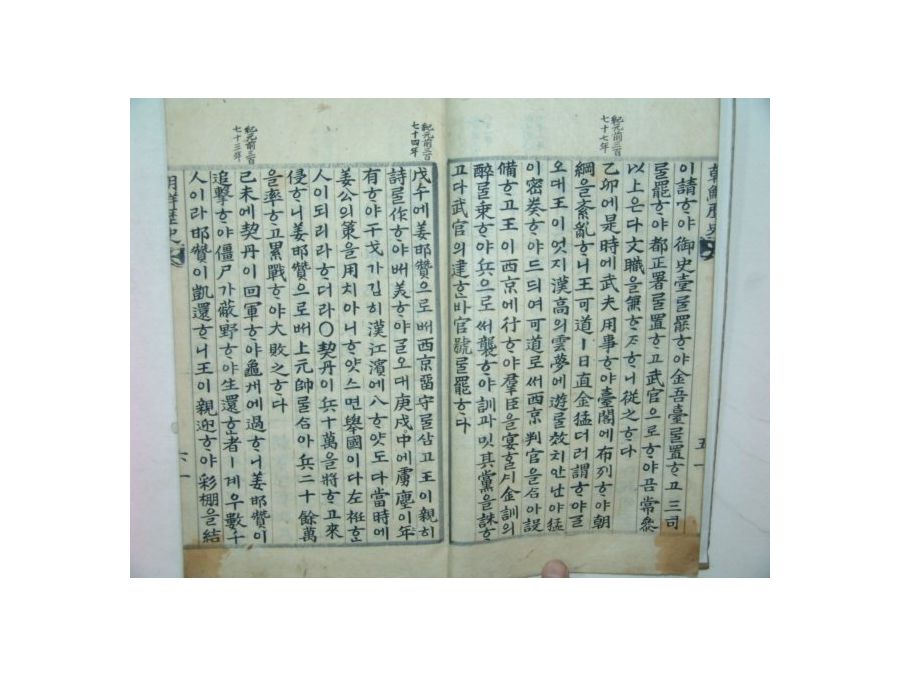 朝鮮歷史
五一
紀元前三百
七十七年
이請ᄒᆞ야御史臺ᄅᆞᆯ罷ᄒᆞ야金吾臺ᄅᆞᆯ置ᄒᆞ고三司
ᄅᆞᆯ罷ᄒᆞ야都正署ᄅᆞᆯ置ᄒᆞ고武官으로ᄒᆞ야곰常參
以上은다文職을兼ᄒᆞᄌᆞᄒᆞ니從之ᄒᆞ다
乙卯에是時에武夫用事ᄒᆞ야臺閣에布列ᄒᆞ야朝
綱을紊亂ᄒᆞ니王可道ㅣ日直金猛더러謂ᄒᆞ야ᄀᆞᆯ
오대王이엇지漢高의雲夢에遊ᄅᆞᆯ效치안난야猛
이密奏ᄒᆞ야드듸여可道로써西京判官을ᄉᆞᆷ아設
備ᄒᆞ고王이西京에行ᄒᆞ야羣臣을宴ᄒᆞᆯᄉᆡ金訓의
醉ᄅᆞᆯ乘ᄒᆞ야兵으로써襲ᄒᆞ야訓과밋其黨을誅ᄒᆞ
고다武官의建ᄒᆞᆫ바官號ᄅᆞᆯ罷ᄒᆞ다
紀元前三百
七十四年
戊午에姜邯贊으로배西京留守ᄅᆞᆯ삼고王이親히
詩ᄅᆞᆯ作ᄒᆞ야배美ᄒᆞ야ᄀᆞᆯ오대庚戌中에虜塵이年
有ᄒᆞ야干戈가깁히漢江濱에入ᄒᆞ얏도다當時에
姜公의策을用치아니ᄒᆞ얏스면擧國이다左袵ᄒᆞᆫ
人이되리라ᄒᆞ더라〇契丹이兵十萬을將ᄒᆞ고來
侵ᄒᆞ니姜邯贊으로배上元帥ᄅᆞᆯᄉᆞᆷ아兵二十餘萬
을率ᄒᆞ고累戰ᄒᆞ야大敗之ᄒᆞ다
紀元前三百
七十三年
己未에契丹이回軍ᄒᆞ야龜州에過ᄒᆞ니姜邯贊이
追擊ᄒᆞ야僵尸가蔽野ᄒᆞ야生還ᄒᆞᆫ者ㅣ계우數千
人이라邯贊이凱還ᄒᆞ니王이親迎ᄒᆞ야彩棚을結
朝鮮歷史